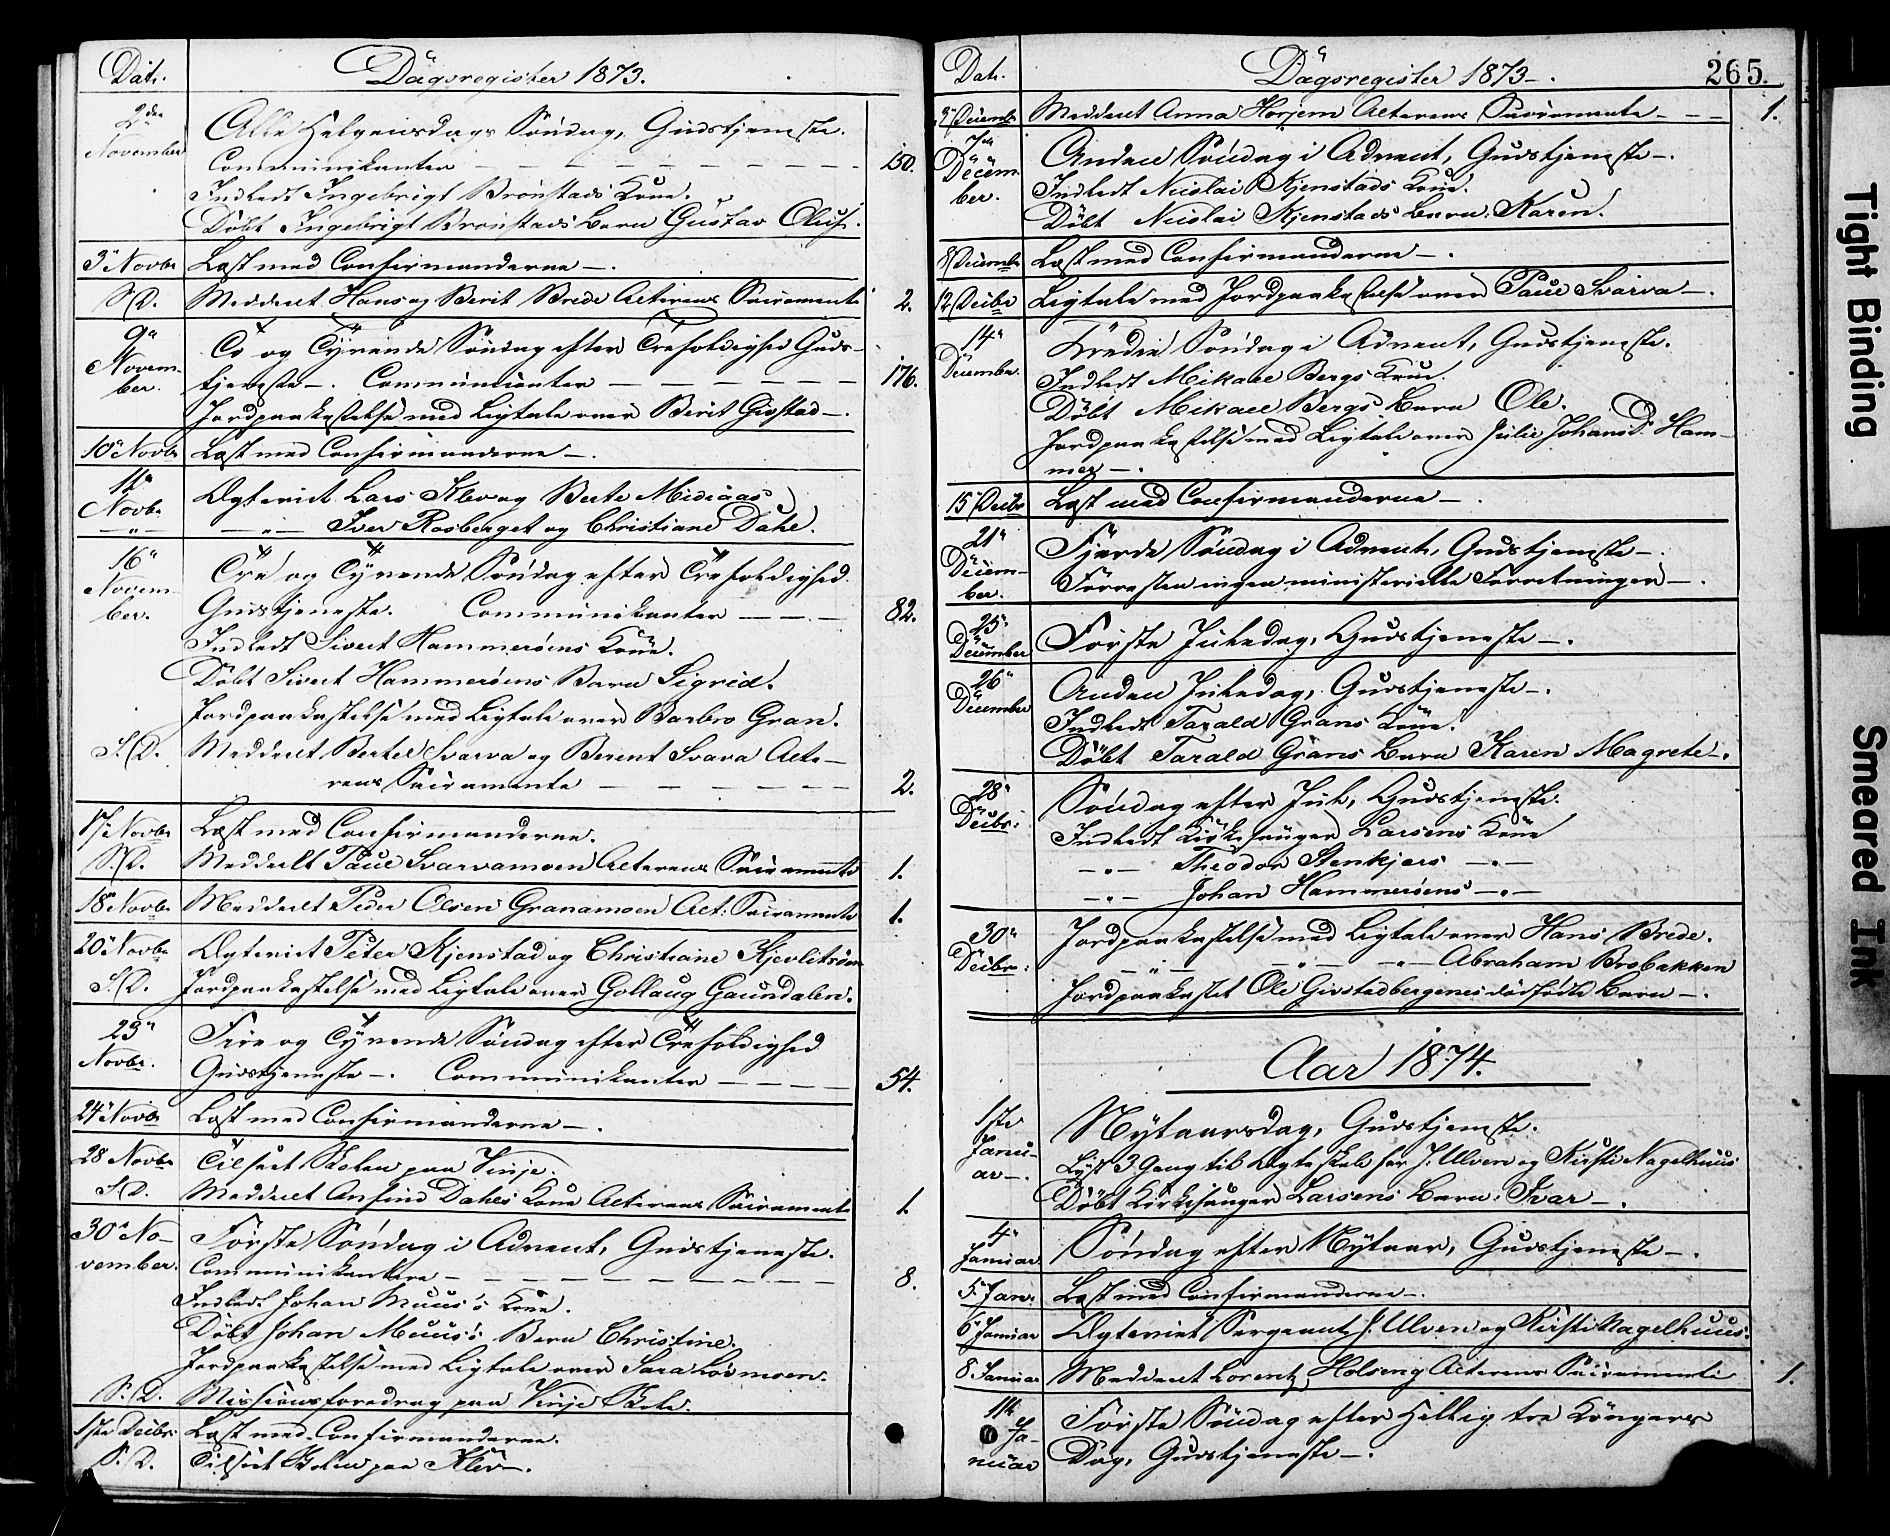 Dat.
Dagsregister 1873.
2den
November
Alle Helgensdags Søndag, Gudstjeneste.
Communikanter — — — — — — — 150.
Indledt Ingebrigt Brønstads Kone.
Døbt Ingebrigt Brønstads Barn Gustav Oluf.
3" Novbr Læst med Confirmanderne —.
S.D. Meddeelt Hans og Berit Brede Alterens Sacramente 2.
9"
Novem-
ber.
To og Tyvende Søndag efter Trefoldighed Guds-
tjeneste —. Communicanter — — — — — — 176.
Jordpaakastelse med Ligtale over Berit Givstad —.
10" Novbr Læst med Confirmanderne —.
Novbr.
Ægteviet Lars Klev og Berte Mediaas
— " — — " — Iver Rosberget og Christiane Dahl.
16"
Novem-
ber.
Tre og Tyvende Søndag efter Trefoldighed.
Gudstjeneste. Communikanter — — — 82.
Indledt Sivert Hammersøens Kone.
Døbt Sivert Hammersøens Barn Sigrid.
Jordpaakastelse med Ligtale over Barbro Gran.
S.D. Meddeelt Bertel Svarva og Berent Svava Alte-
rens Sacramente — — — — — — 2.
17" Novbr Læst med Confirmanderne.
S.D. Meddeelt Paul Svarvamoen Alterens Sacramente 1.
18" Novbr Meddeelt Peder Olsen Granamoen Alt: Sacramente 1.
20" Novbr Ægteviet Peter Kjenstad og Christiane
S.D. Jordpaakastelse med Ligtale over Gollaug Gaundalen.
23"
Novbr.
Fire og Tyvende Søndag efter Trefoldighed
Gudstjeneste —. Communikanter — — — — 54.
24" Novbr Læst med Confirmanderne —.
28 Novbr Tilseet Skolen paa Vinje.
S.D. Meddeelt Anfind Dahls Kone Alterens Sacramente 1.
30" No-
vember.
Første Søndag i Advent, Gudstjeneste.
Communikantere — — — — — — — — — 8.
Indledt Johan Muus's Kone.
Døbt Johan Muus's Barn Christine.
Jordpaakastelse med Ligtale over Sara
S.D. Missionsforedrag paa Vinje Skole.
1ste Decbr. Læst med Confirmanderne.
S.D. Tilseet Skolen paa Klev —.
Dat.
Dagsregister 1873 —.
265.
3" Decembr Meddeelt Anna Horjem Alterens Sacramente — — — 1.
7de
Decem-
ber.
Anden Søndag i Advent, Gudstjeneste —.
Indledt Nicolai Kjenstads Kone.
Døbt Nicolai Kjenstads Barn Karen.
8" Decembr Læst med Confirmanderne —.
12" Decbr Ligtale med Jordpaakastelse over Paul Svarva —.
14"
December.
Tredie Søndag i Advent, Gudstjeneste.
Indledt Mikael Bergs Kone.
Døbt Mikael Bergs Barn Ole.
Jordpaakastelse med Ligtale over Julie JohansD. Ham-
mer —.
15" Decbr Læst med Confirmanderne —.
21"
Decem-
ber.
Fjerde Søndag i Advent, Gudstjeneste —.
Forresten ingen ministerielle Forretninger —.
25"
December
Første Juledag, Gudstjeneste —.
26"
December
Anden Juledag, Gudstjeneste —.
Indledt Tarald Grans Kone.
Døbt Tarald Grans Barn Karen Magrete —.
28"
Decbr:
Søndag efter Jul, Gudstjeneste.
Indledt Kirkesanger Larsens Kone
— " — Theodor Stenkjers — " —
— " — Johan Hammersøens — " —
30"
Decbr:
Jordpaakastelse med Ligtale over Hans Brede.
— " — — " — — " — Abraham Brobakken
Jordpaakastet Ole Givstadbergenes dødfødte Barn —.
Aar 1874.
1ste
Janu-
ar —.
Nytaarsdag, Gudstjeneste.
Lyst 3 Gang til Ægteskab for J. Ulven og Kirsti Nagelhuus
Døbt Kirkesanger Larsens Barn: Ivar —.
4"
Januar
Søndag efter Nytaar, Gudstjeneste —.
5" Jan: Læst med Confirmanderne —.
6" Januar Ægteviet Sergeant J. Ulven og Kirsti Nagelhuus.
8. Januar Meddeelt Lorentz Holseng Alterens Sacramente 1.
11te
Ja-
nuar
Første Søndag efter Hellig tre Kongers
Dag, Gudstjeneste —.
Tight Binding
Smeared Ink